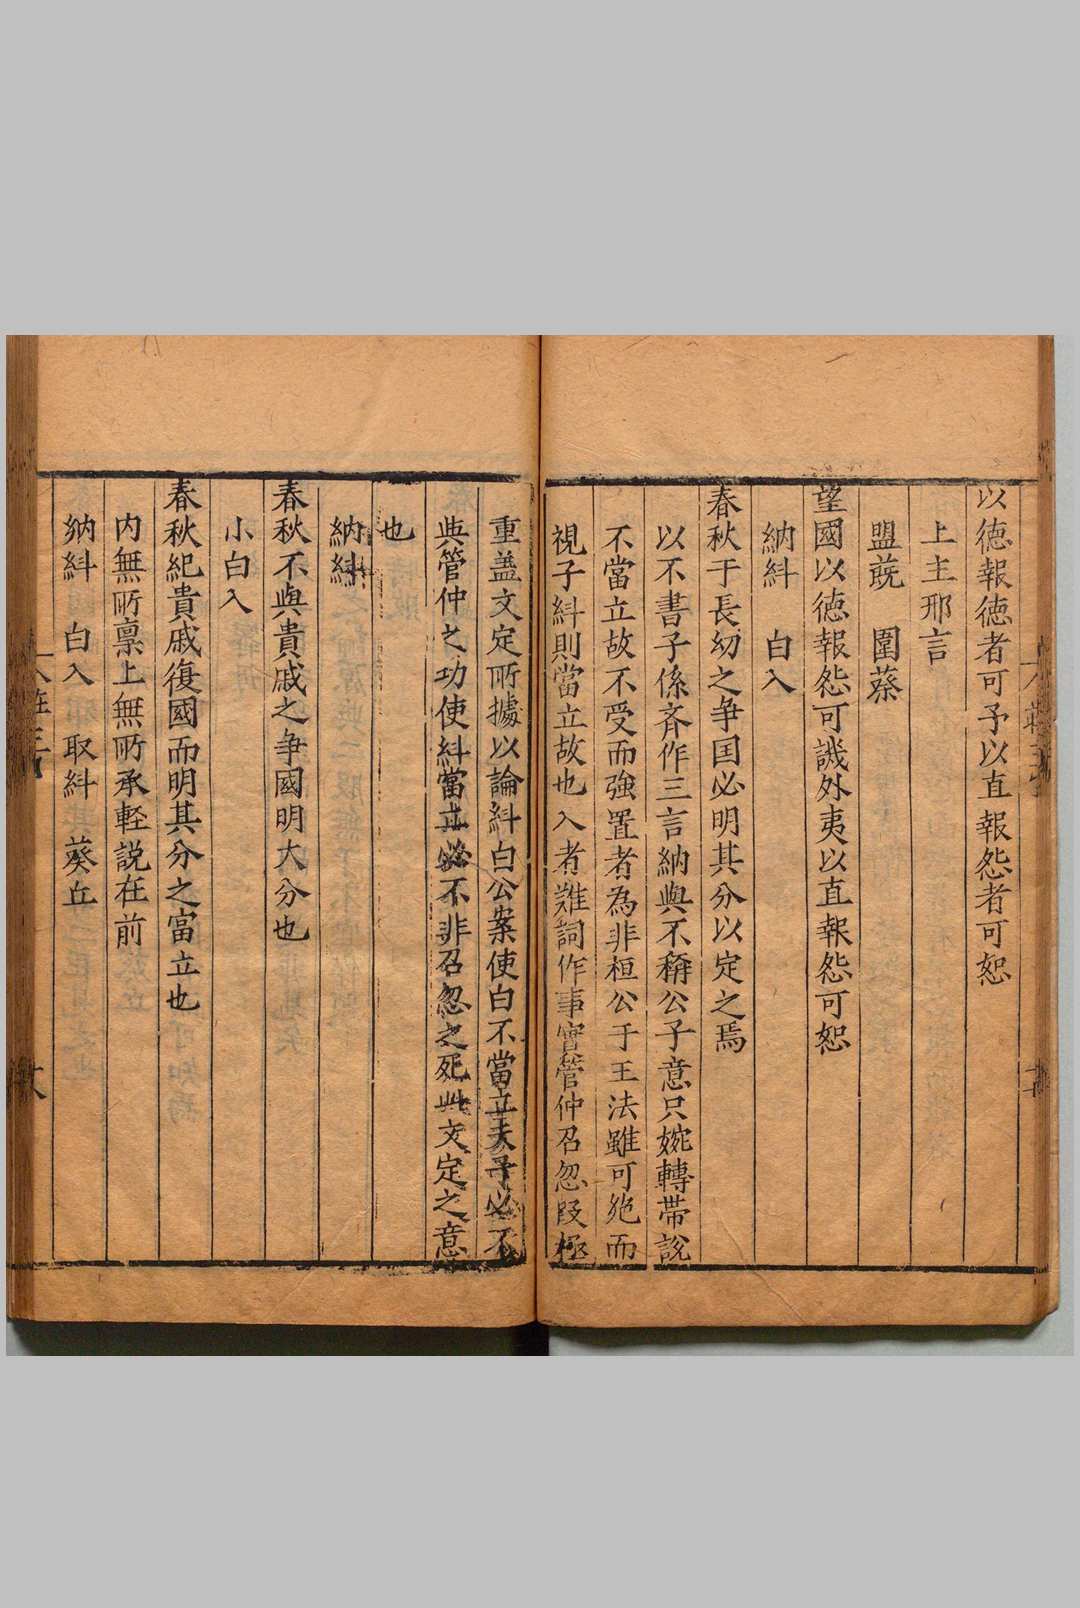 以徳報徳者可予以直報怨者可恕
上主邢言
盟蔇　圍蔡
望國以徳報怨可譏外夷以直報怨可恕
納糾　白入
春秋于長幼之争国必明其分以定之焉
以不書子係斉作三言納與不稱公子意只婉轉帯説
不當立故不受而強置者為非桓公于王法雖可絶而
視子糾則當立故也入者難詞作事實管仲召忽叚極
重盖文定所據以論糾白公案使白不當立夫子必不
與管仲之功使糾當立必不非召忽之死此文定之意
也
納糾
春秋不與貴戚之争國明大分也
小白入
春秋紀貴戚復國而明其分之當立也
内無所禀上無所承軽説在前
納糾　白入　取糾　葵丘